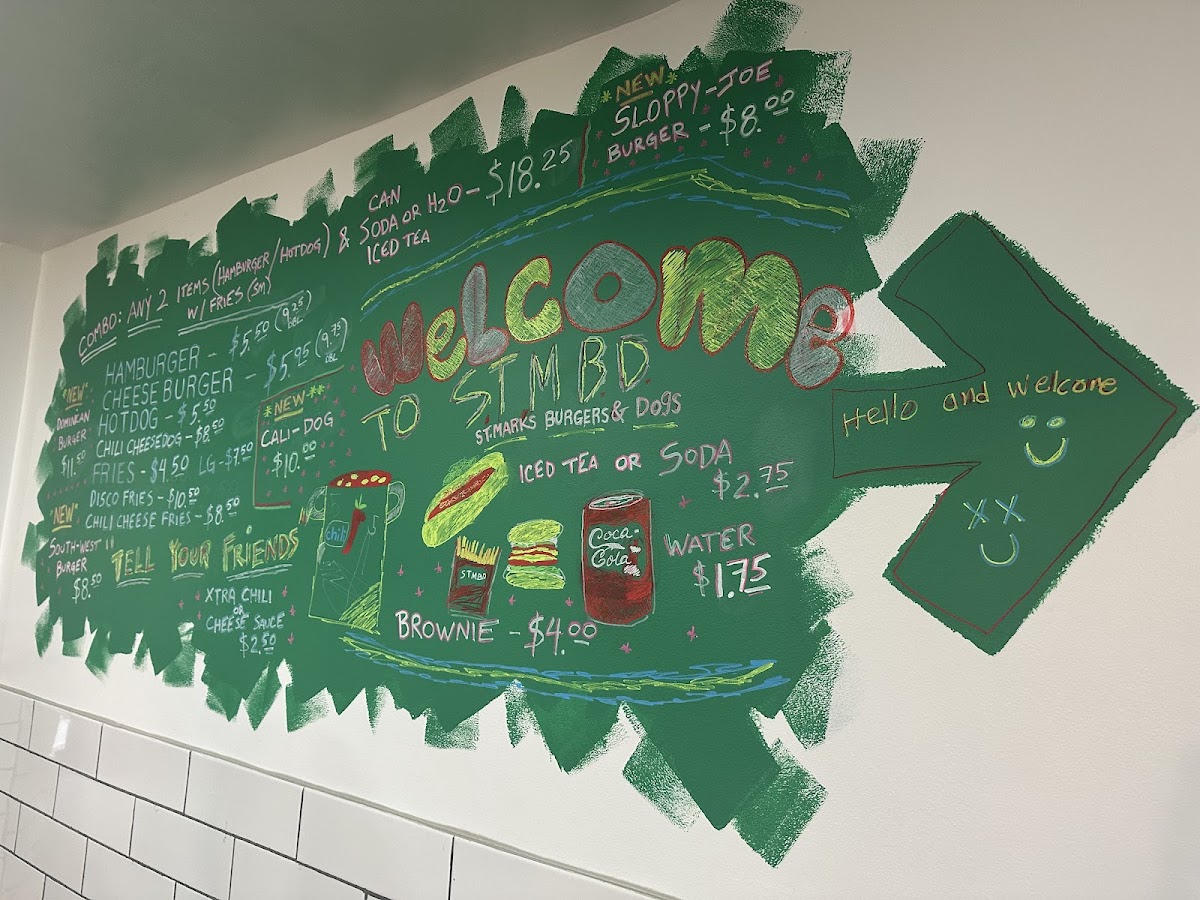 COMBO: ANY 2 ITEMS (HAMBURGER/HOTDOG) & CAN SODA OR H2O - $18.25
W/ FRIES (SM)
ICED TEA
*NEW*
SLOPPY-JOE
BURGER - $8.00
HAMBURGER - $5.50 (9.25 DBL)
CHEESE BURGER - $5.95 (9.75 DBL)
HOTDOG - $5.50
CHILI CHEESEDOG - $8.50
FRIES - $4.50 LG - $7.50
DISCO FRIES - $10.50
CHILI CHEESE FRIES - $8.50
"NEW"
DOMINICAN
BURGER
$11.50
"NEW"
SOUTH-WEST
BURGER
$8.50
*NEW**
CALI-DOG
$10.00
"TELL YOUR FRIENDS"
XTRA CHILI
OR
CHEESE SAUCE
$2.50
WELCOME
TO STMBD
ST.MARKS BURGERS & DOGS
ICED TEA OR SODA
$2.75
WATER
$1.75
chili
STMBD
Coca-
Cola
BROWNIE - $4.00
Hello and welcome